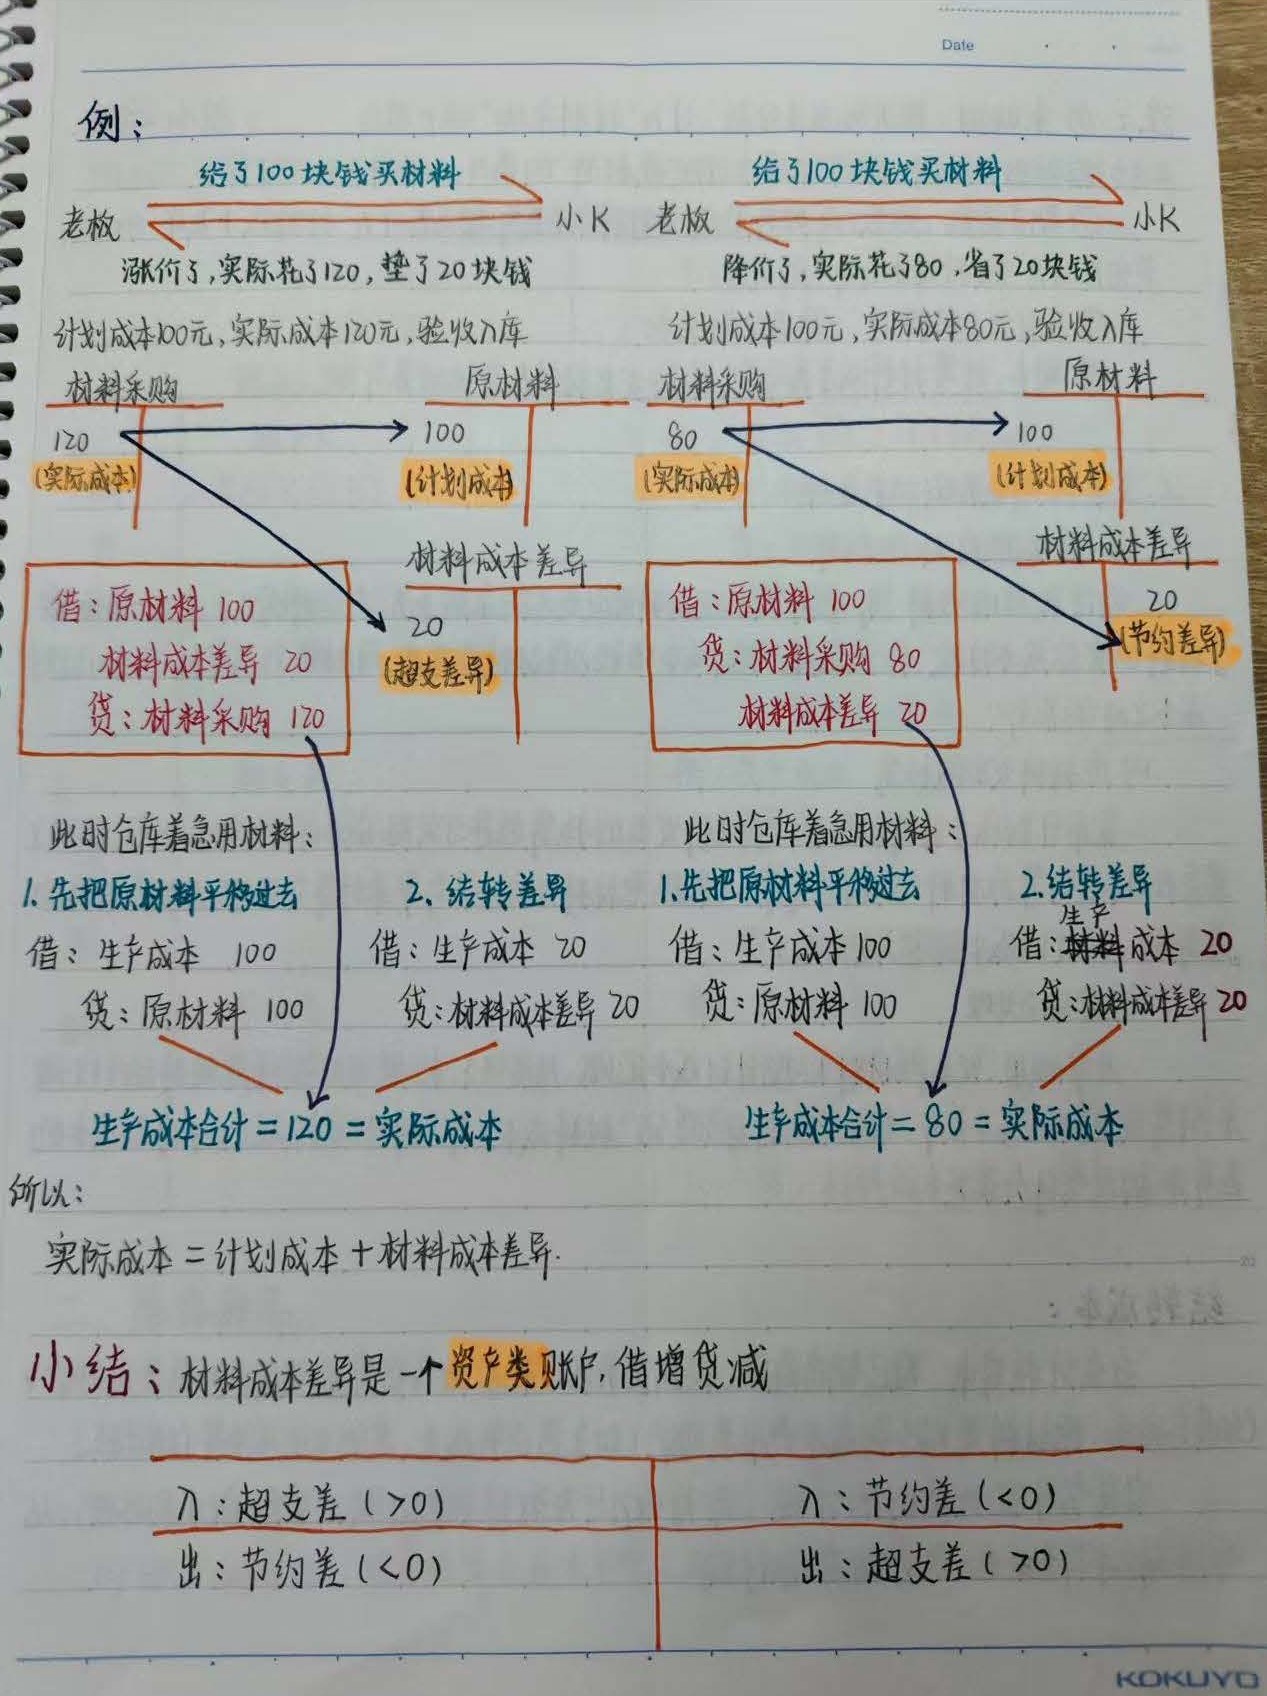 Date
例：
给了100块钱买材料
老板 小K
涨价了,实际花了120,垫了20块钱
计划成本100元,实际成本120元,验收入库
材料采购 原材料
120 100
(实际成本) (计划成本)
材料成本差异
20
(超支差异)
借：原材料 100
材料成本差异 20
贷：材料采购 120
此时仓库着急用材料：
1.先把原材料平移过去
借：生产成本 100
贷：原材料 100
2、结转差异
借：生产成本 20
贷：材料成本差异 20
生产成本合计＝120＝实际成本
给了100块钱买材料
老板 小K
降价了,实际花了80,省了20块钱
计划成本100元,实际成本80元,验收入库
材料采购 原材料
80 100
(实际成本) (计划成本)
材料成本差异
20
(节约差异)
借：原材料 100
贷：材料采购 80
材料成本差异 20
此时仓库着急用材料：
1.先把原材料平移过去
借：生产成本 100
贷：原材料 100
2.结转差异
借：生产成本 20
贷：材料成本差异 20
生产成本合计＝80＝实际成本
所以：
实际成本＝计划成本＋材料成本差异.
小结：材料成本差异是一个资产类账户,借增贷减
入：超支差(>0) 入：节约差(<0)
出：节约差(<0) 出：超支差(>0)
KOKUYO